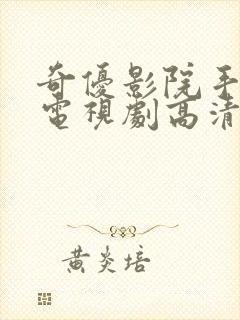 奇優影院手
電視劇高清
黃炎培